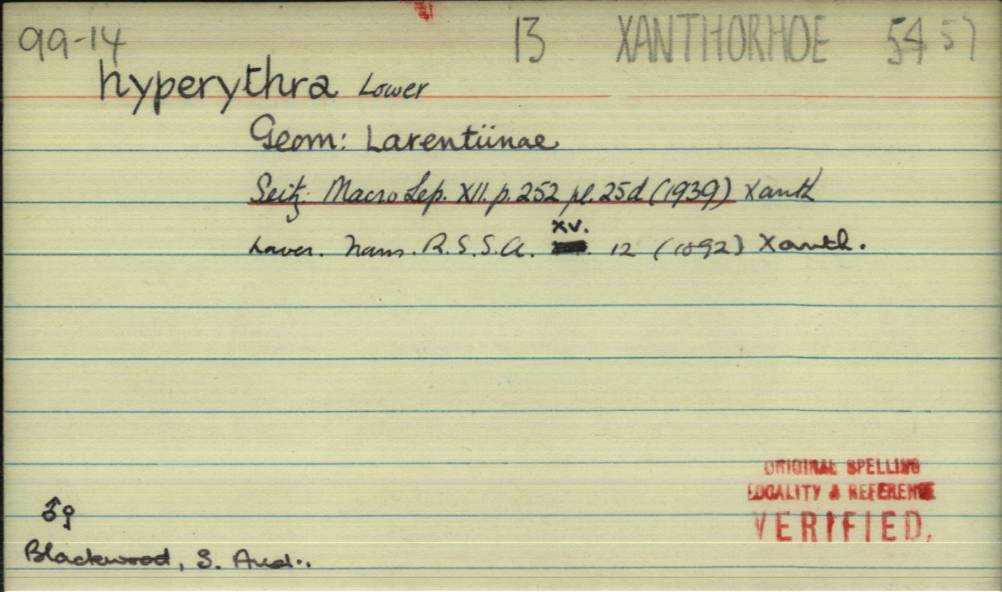 99-14 13 XANTHORHOE 54 57
hyperythra Lower
Geom: Larentiinae
Seitz: Macro Lep. XII. p. 252 pl. 25d (1939) Xanth
Lower. Trans. R.S.S.A. XV. 12 (1892) Xanth.
ORIGINAL SPELLING
LOCALITY & REFERENCE
VERIFIED.
♂♀
Blackwood, S. Aust..